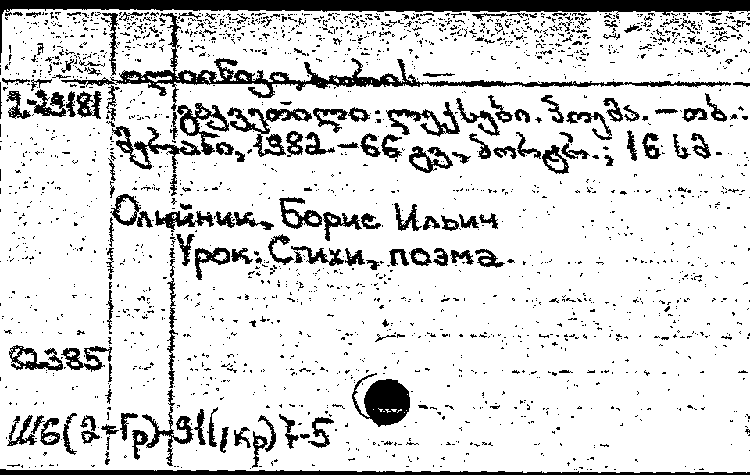 ოლიინიკი, ბორის —
გაკვეთილი: ლექსები. პოემა. — თბ.:
მერანი, 1982. — 66 გვ., პორტრ.; 16 სმ.
Олийник, Борис Ильич
Урок: Стихи, поэма.
82385
Ш6(2=Гр)-91(1кр)7-5